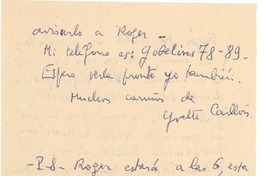 avisarlo a Roger -
Mi teléfono es: Gobelins 78-89-
Espero verla pronto yo también.
Muchos cariños de
Yvette Caillois
-P.S- Roger estará a las 6, esta